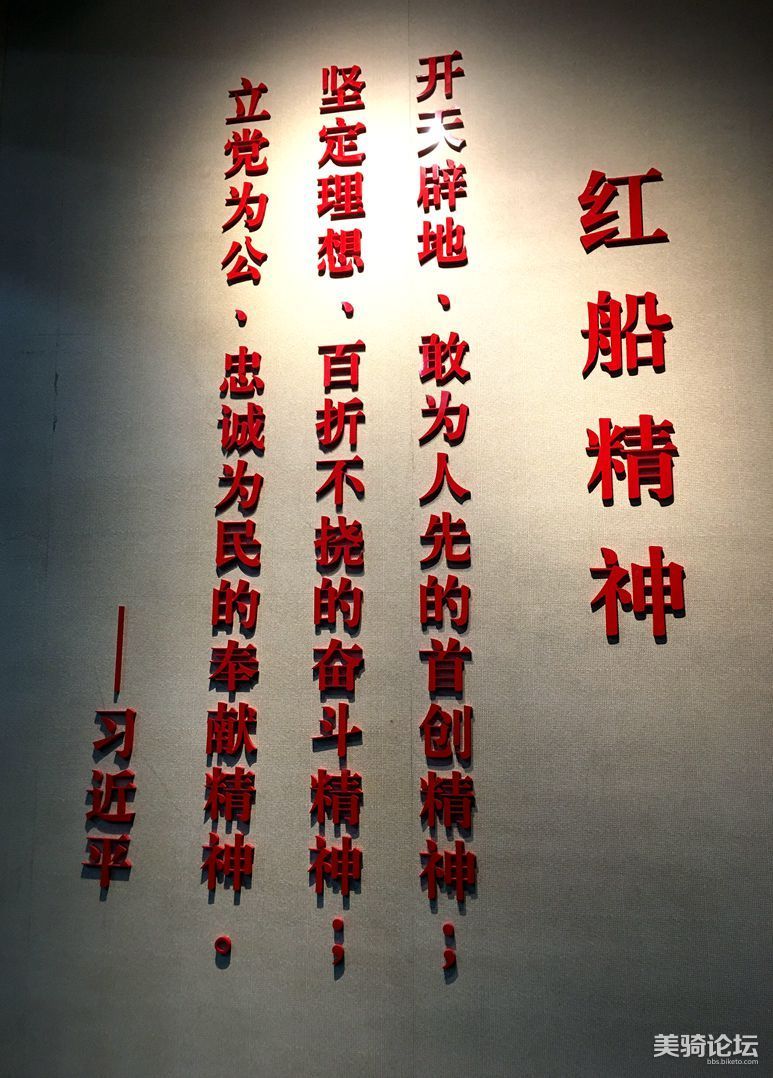 红船精神
开天辟地、敢为人先的首创精神；
坚定理想、百折不挠的奋斗精神；
立党为公、忠诚为民的奉献精神。
——习近平
美骑论坛
bbs.biketo.com